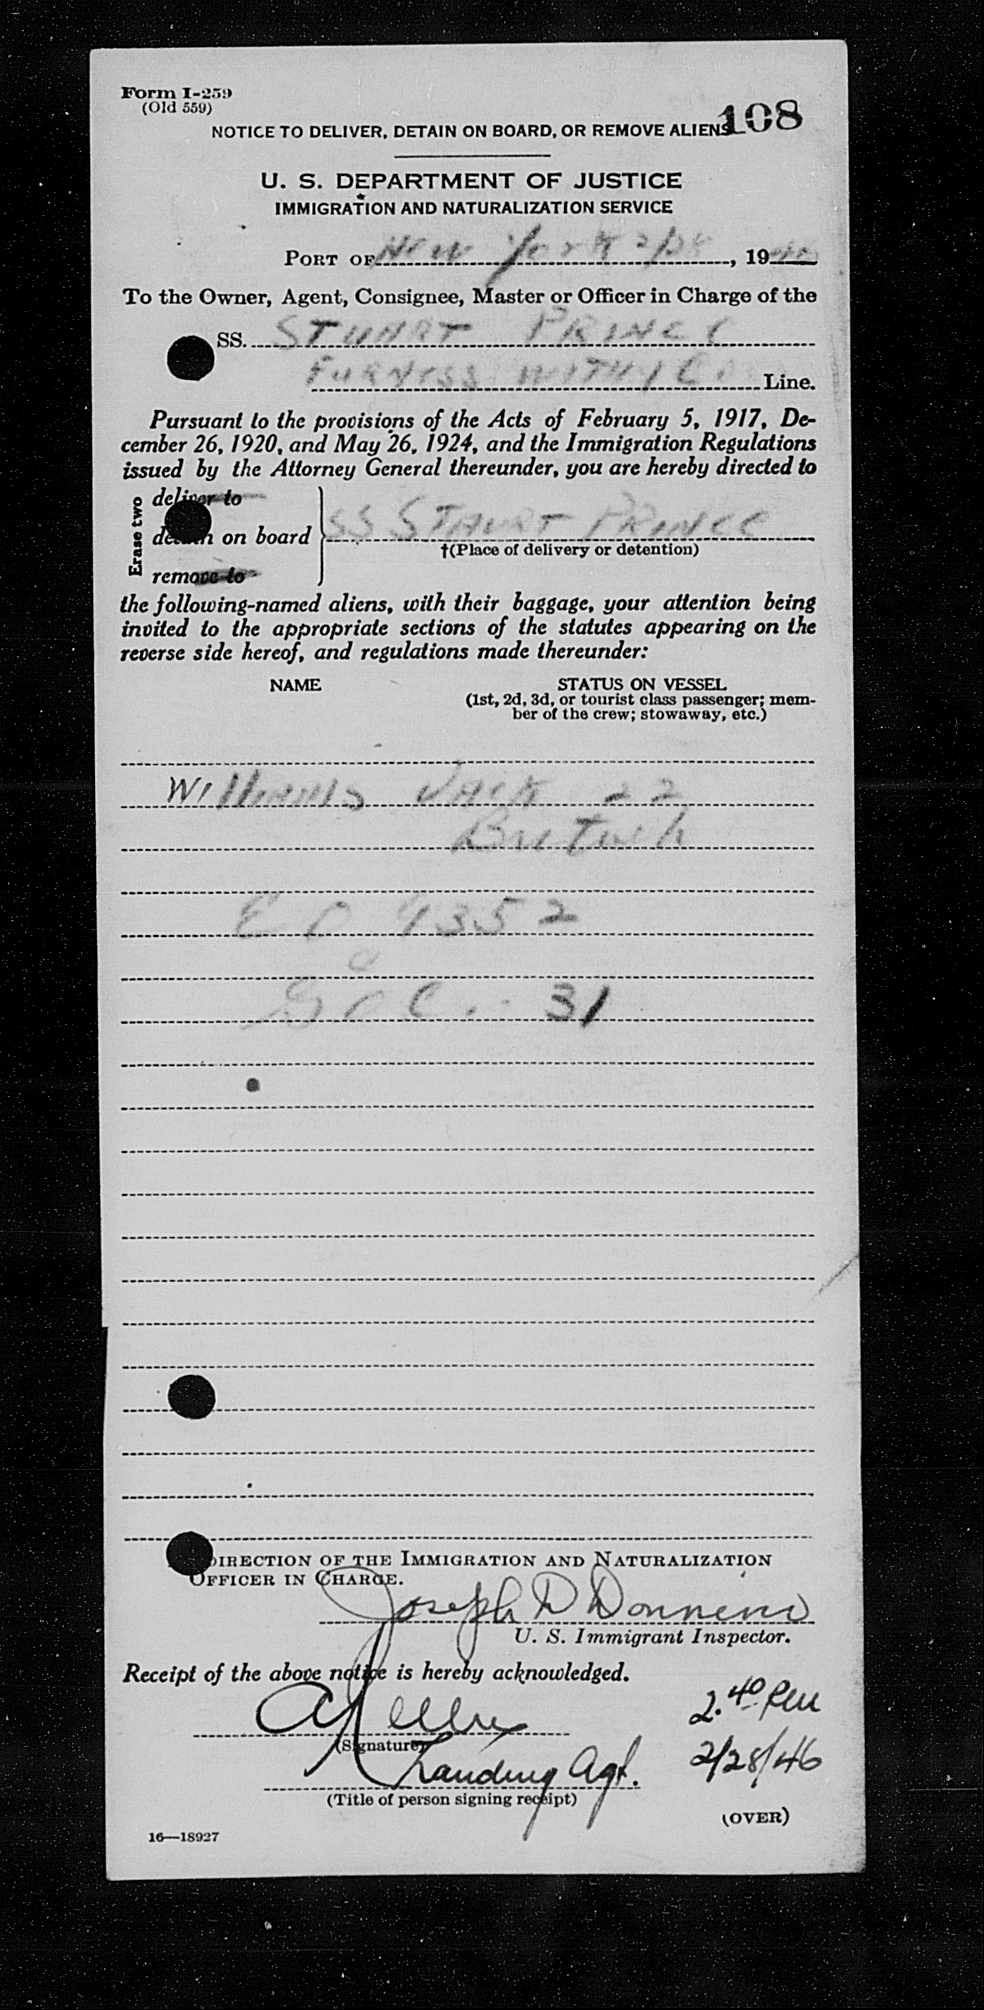 Form I-259
(Old 559)
108
NOTICE TO DELIVER, DETAIN ON BOARD, OR REMOVE ALIENS
U. S. DEPARTMENT OF JUSTICE
IMMIGRATION AND NATURALIZATION SERVICE
PORT OF New York 2/28, 1946
To the Owner, Agent, Consignee, Master or Officer in Charge of the
SS. STUART PRINCE
FURNESS WITHY Co. Line.
Pursuant to the provisions of the Acts of February 5, 1917, De-
cember 26, 1920, and May 26, 1924, and the Immigration Regulations
issued by the Attorney General thereunder, you are hereby directed to
Erase two
deliver to
detain on board
SS STAURT PRINCE
†(Place of delivery or detention)
remove to
the following-named aliens, with their baggage, your attention being
invited to the appropriate sections of the statutes appearing on the
reverse side hereof, and regulations made thereunder:
NAME
STATUS ON VESSEL
(1st, 2d, 3d, or tourist class passenger; mem-
ber of the crew; stowaway, etc.)
Williams Jack 22
British
9352
31
DIRECTION OF THE IMMIGRATION AND NATURALIZATION
OFFICER IN CHARGE.
Joseph D
U. S. Immigrant Inspector.
Receipt of the above notice is hereby acknowledged.
2.40 PM
(Signature)
2/28/46
Landing Agt.
(Title of person signing receipt)
(OVER)
16—18927